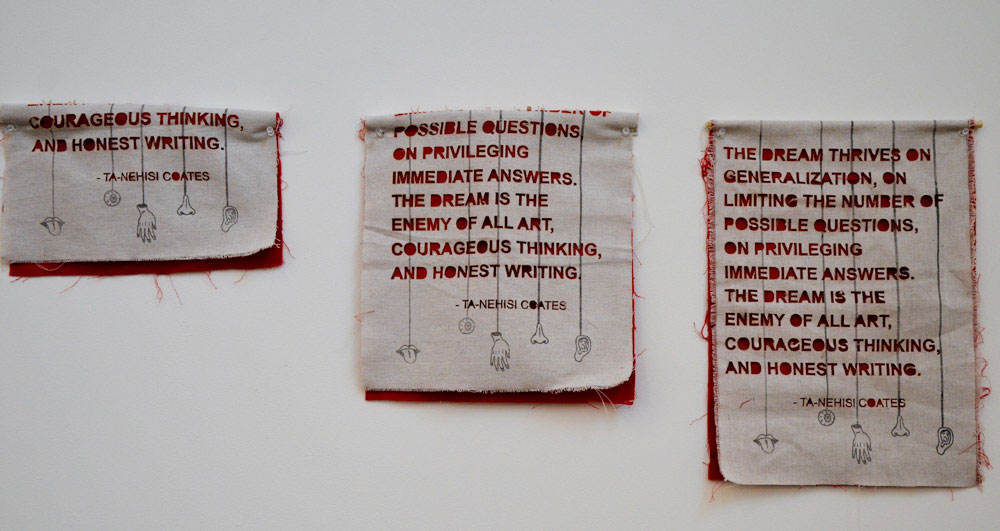 COURAGEOUS THINKING,
AND HONEST WRITING.
- TA-NEHISI COATES
POSSIBLE QUESTIONS
ON PRIVILEGING
IMMEDIATE ANSWERS.
THE DREAM IS THE
ENEMY OF ALL ART,
COURAGEOUS THINKING,
AND HONEST WRITING.
- TA-NEHISI COATES
THE DREAM THRIVES ON
GENERALIZATION, ON
LIMITING THE NUMBER OF
POSSIBLE QUESTIONS,
ON PRIVILEGING
IMMEDIATE ANSWERS.
THE DREAM IS THE
ENEMY OF ALL ART,
COURAGEOUS THINKING,
AND HONEST WRITING.
- TA-NEHISI COATES